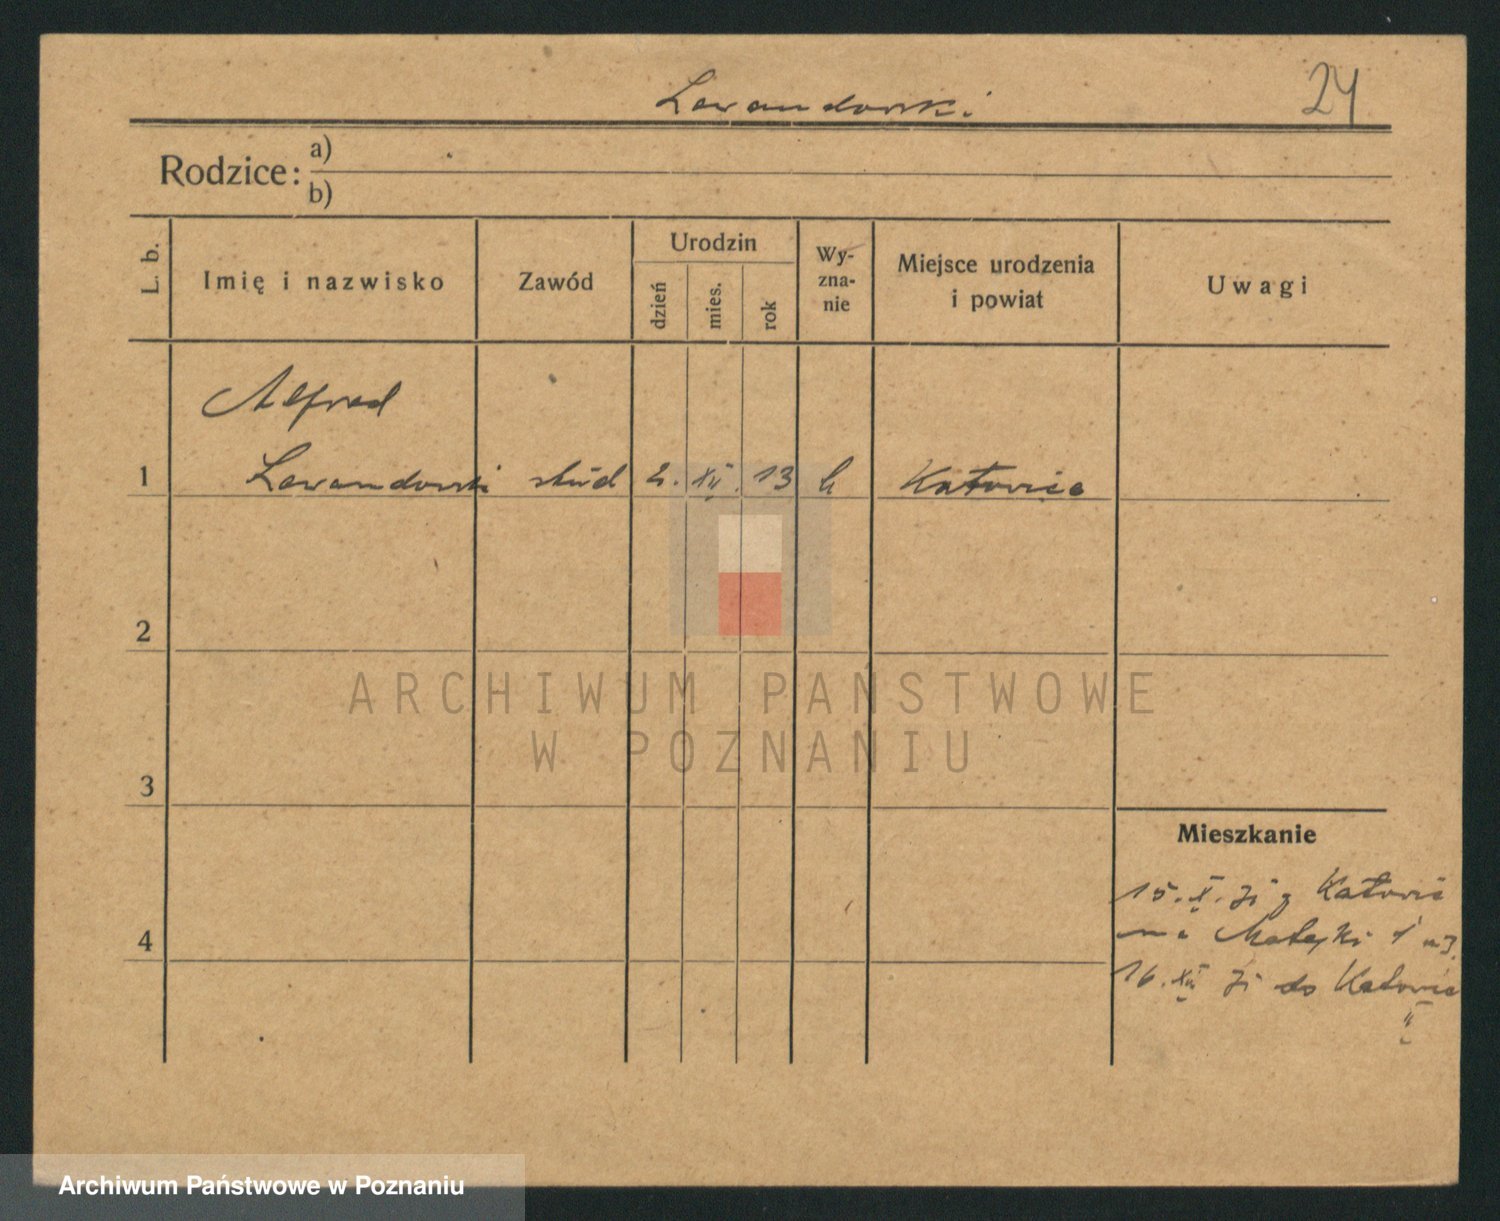 Lewandowski
24
Rodzice: a)
b)
L. b.
Imię i nazwisko
Zawód
Urodzin
dzień
mies.
rok
Wy-
zna-
nie
Miejsce urodzenia
i powiat
Uwagi
Alfred
1 Lewandowski stud 2. XII. 13 k Katowice
2
ARCHIWUM PAŃSTWOWE
W POZNANIU
3
Mieszkanie
15. X. 31 z Katowic
4
na Matejki 1 m 3.
16. XII 31 do Katowic
Archiwum Państwowe w Poznaniu